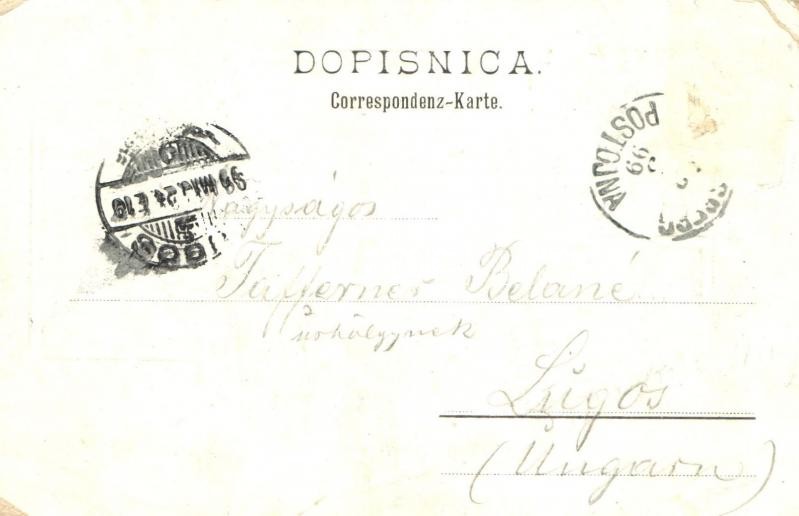 DOPISNICA.
Correspondenz-Karte.
POSTOJNA
99
99 MAJ. 24. E. 10
LUGOS
Nagyságos
Tafferner Belané
úrhölgynek
Lugos
(Ungarn)